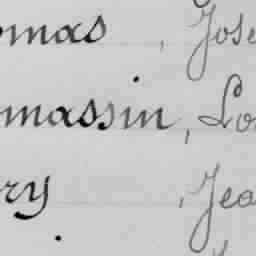 omas, Jose
massin, Lo
ry, Jea